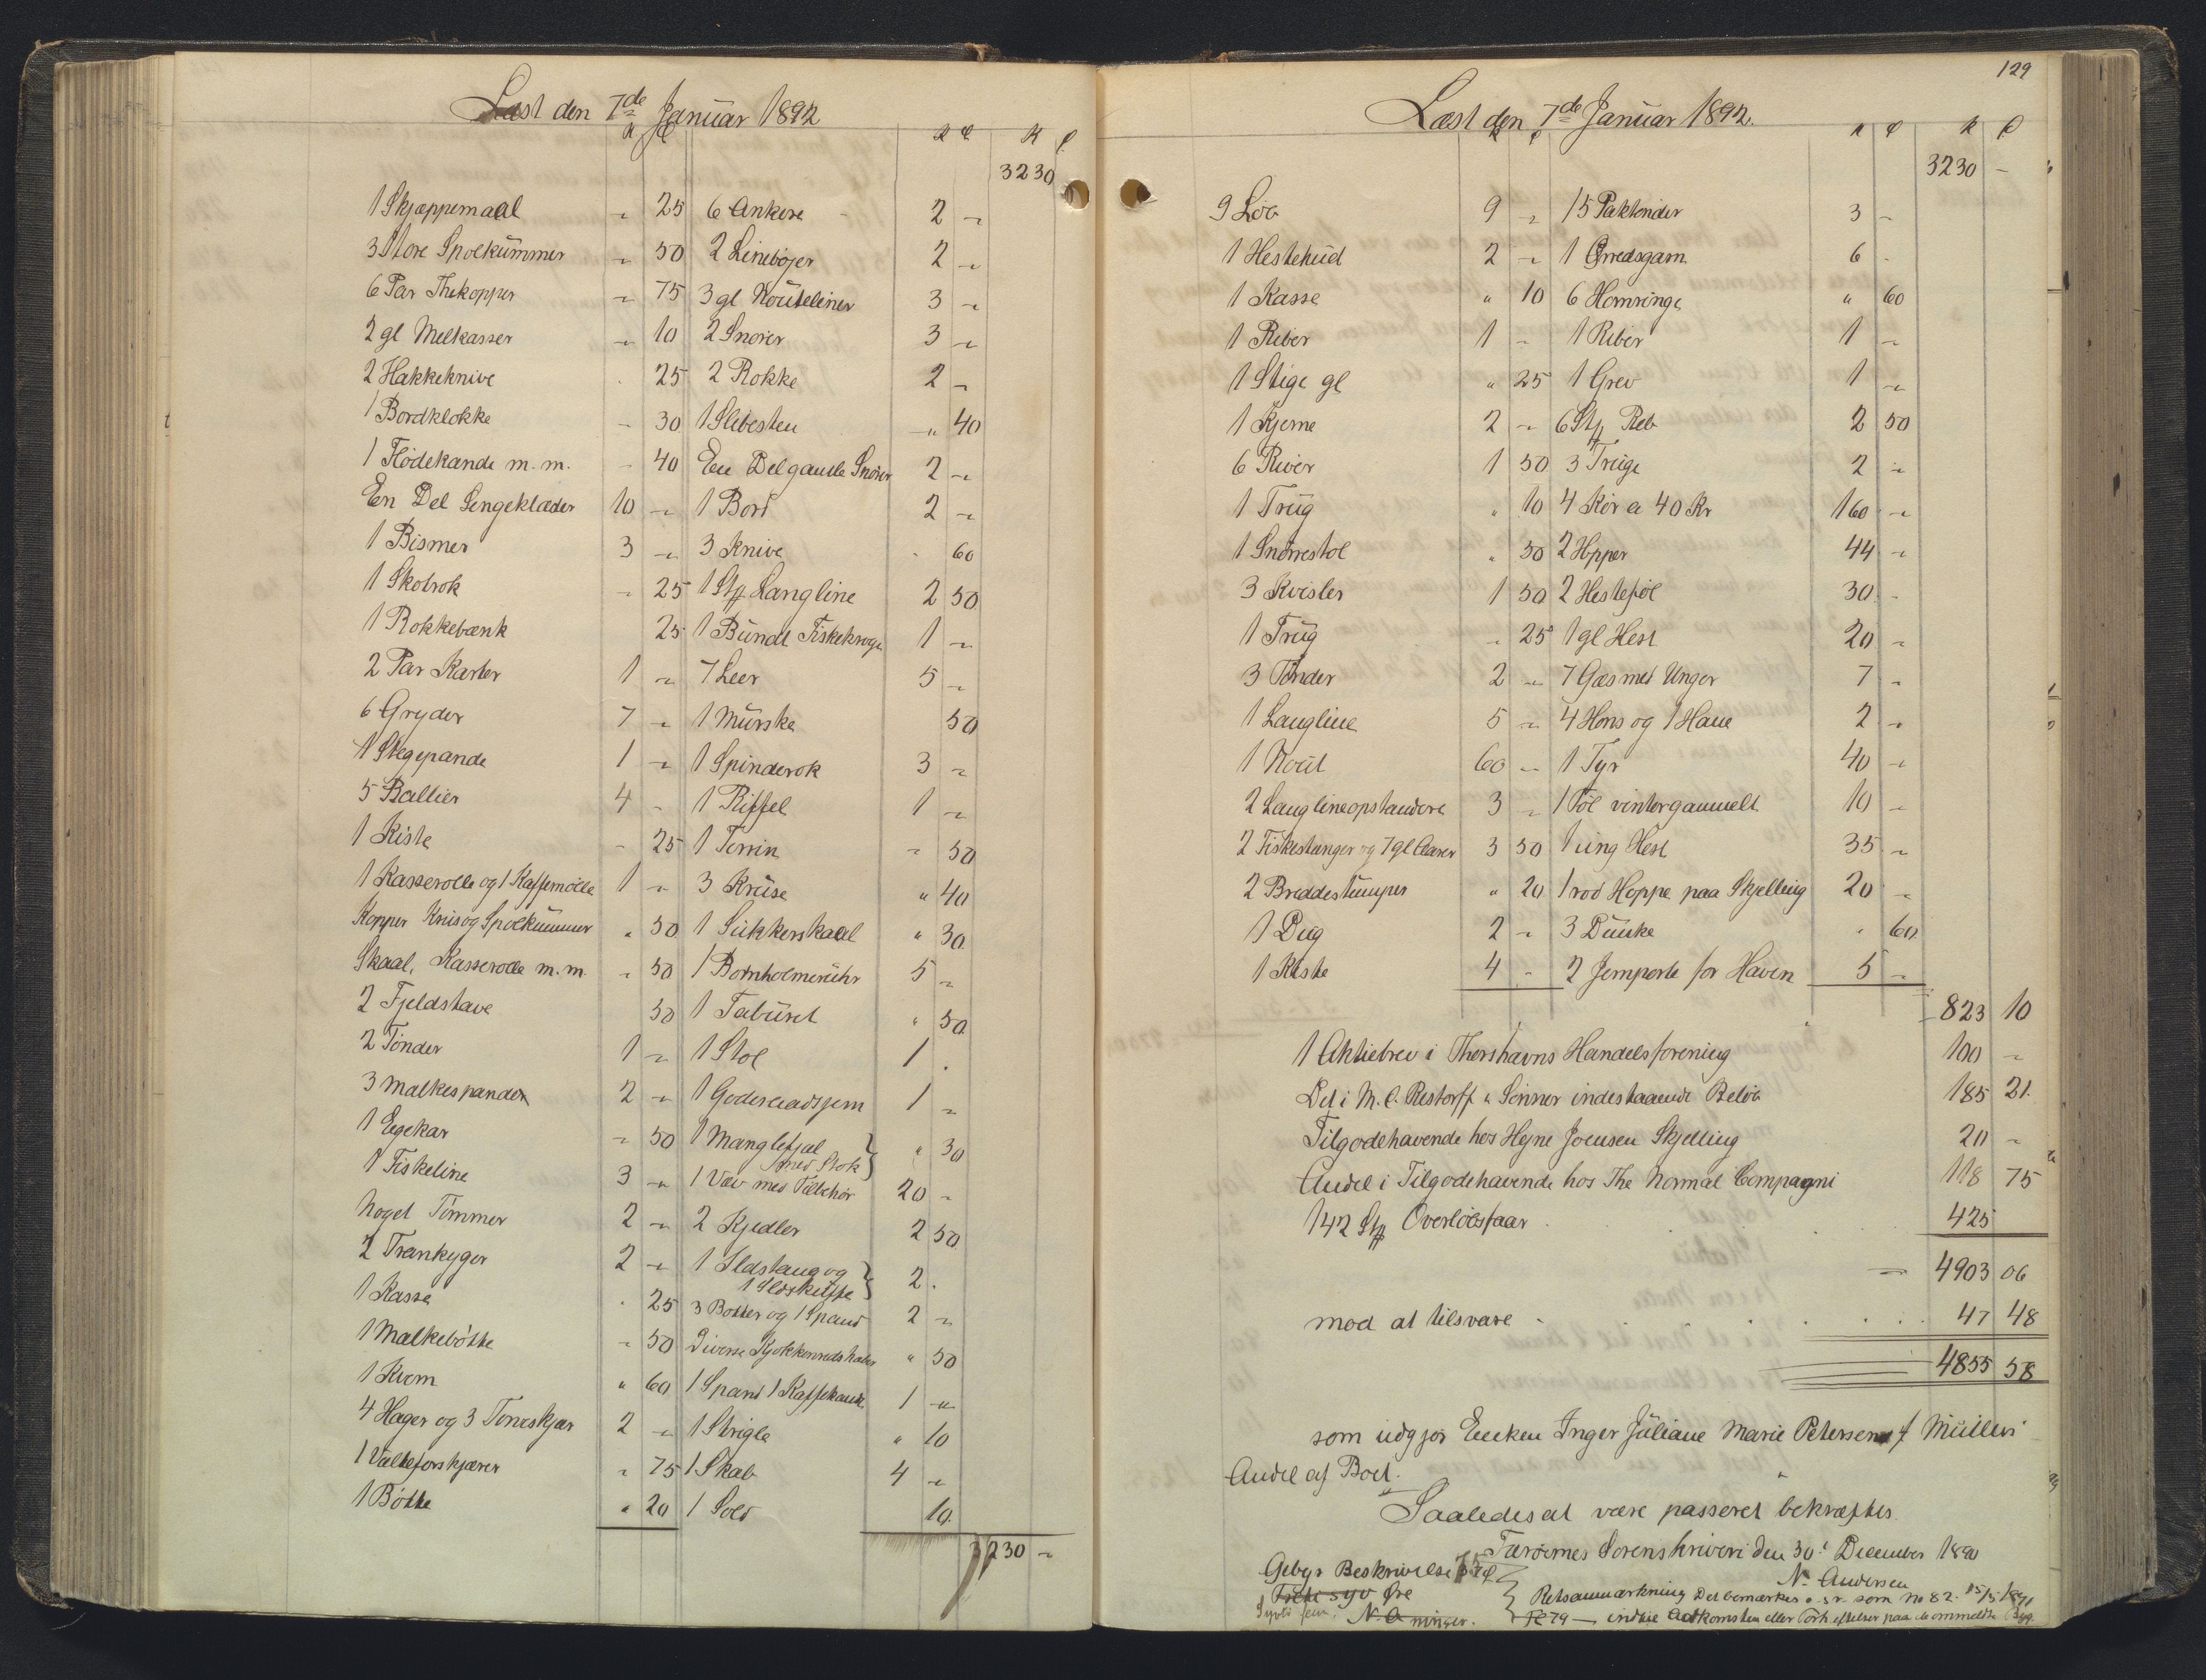 Læst den 7de Januar 1892
K Ø K Ø K Ø
3230
1 Skjæppemaal " 25 6 Ankere 2 "
3 Store Spolkummer " 50 2 Linebøjer 2 "
6 Par Thekopper " 75 3 gl Nouteliner 3 "
2 gl Melkasser " 10 2 Snører 3 "
2 Hakkeknive " 25 2 Rokke 2 "
1 Bordklokke " 30 1 Slibesten " 40
1 Flödekande m. m. " 40 En Del gamle Snører 2 "
En Del Sengeklæder 10 " 1 Bord 2 "
1 Bismer 3 " 3 Knive " 60
1 Skotrok " 25 1 Stk Langline 2 50
1 Rokkebænk 25 1 Bundt Fiskekroge 1 "
2 Par Karter 1 " 7 Leer 5 "
6 Gryder 7 " 1 Murske 50
1 Stegepande 1 " 1 Spinderok 3 "
5 Ballier 4 " 1 Riffel 1 "
1 Kiste " 25 1 Terrin " 50
1 Kasserolle og 1 Kaffemölle 1 " 3 Kruse " 40
Kopper Krus og Spolkummer " 50 1 Sukkerskaal " 30
Skaal, Kasserolle m. m. " 50 1 Bornholmeruhr 5 "
2 Fjeldstave 50 1 Taburet " 50
2 Tönder 1 " 1 Stol 1 "
3 Malkespander 2 " 1 Goderaadsjern 1 "
1 Egekar " 50 1 Manglefjæl
med Stok } " 30
1 Fiskeline 3 " 1 Væv med Tilbehör 20 "
Noget Tömmer 2 " 2 Kjedler 2 50
2 Trankyger 2 " 1 Ildstang og
1 Ildskuffe } 2 "
1 Kasse " 25 3 Bötter og 1 Spand 2 "
1 Malkebötte " 50 Diverse Kjökkenredskaber " 50
1 Kvern " 60 1 Spand 1 Kaffekande 1 "
4 Hager og 3 Torvskjær 2 " 1 Strigle " 10
1 Valteforskjærer " 75 1 Skab 4 "
1 Bötte " 20 1 Sold 10
3230 "
129
Læst den 7de Januar 1892.
K Ø K Ø K Ø
3230 "
9 Löb 9 " 15 Paktönder 3 "
1 Hestehud 2 " 1 Örredsgarn 6 "
1 Kasse " 10 6 Hornringe " 60
1 Reber 1 " 1 Reber 1 "
1 Stige gl " 25 1 Grev 1 "
1 Kjerne 2 " 6 Stk Reb 2 50
6 River 1 50 3 Truge 2 "
1 Trug " 10 4 Kör a 40 Kr 160 "
1 Snörrestol " 50 2 Hpper 44 "
3 Kvisler 1 50 2 Hesteföl 30 "
1 Trug " 25 1 gl Hest 20 "
3 Tönder 2 " 7 Gæs med Unger 7 "
1 Langline 5 " 4 Höns og 1 Hane 2 "
1 Nout 60 " 1 Tyr 40 "
2 Langlineopstandere 3 " 1 Föl vintergammelt 10 "
2 Fiskestænger og 7 gl Aarer 3 50 1 ung Hest 35 "
2 Breddestumper " 20 1 rød Hoppe paa Skjelling 20 "
1 Dug 2 " 3 Dunke " 60
1 Kiste 4 " 2 Jernporte for Haven 5 "
823 10
1 Aktiebrev i Thorshavns Handelsforening 100 "
Det i M. C. Restorff & Sönner indestaaende Belöb 185 21
Tilgodehavende hos Hejne Joensen Skjelling 20 "
Andel i Tilgodehavende hos The Normal Compagni 118 75
142 Stk Overlöbsfaar 425
4903 06
mod at tilsvare 47 48
4855 58
som udgjör Enken Inger Juliane Marie Petersen f Müllers
Andel af Boet.
Saaledes at være passeret bekræftes.
Færöernes Sorenskriveri den 30' December 1890
N. Andersen
Gebyr Beskrivelse
syv Öre
Syvti fem
Retsanmærkning Det bemærkes a. sr. som No 82. 15/5 1891